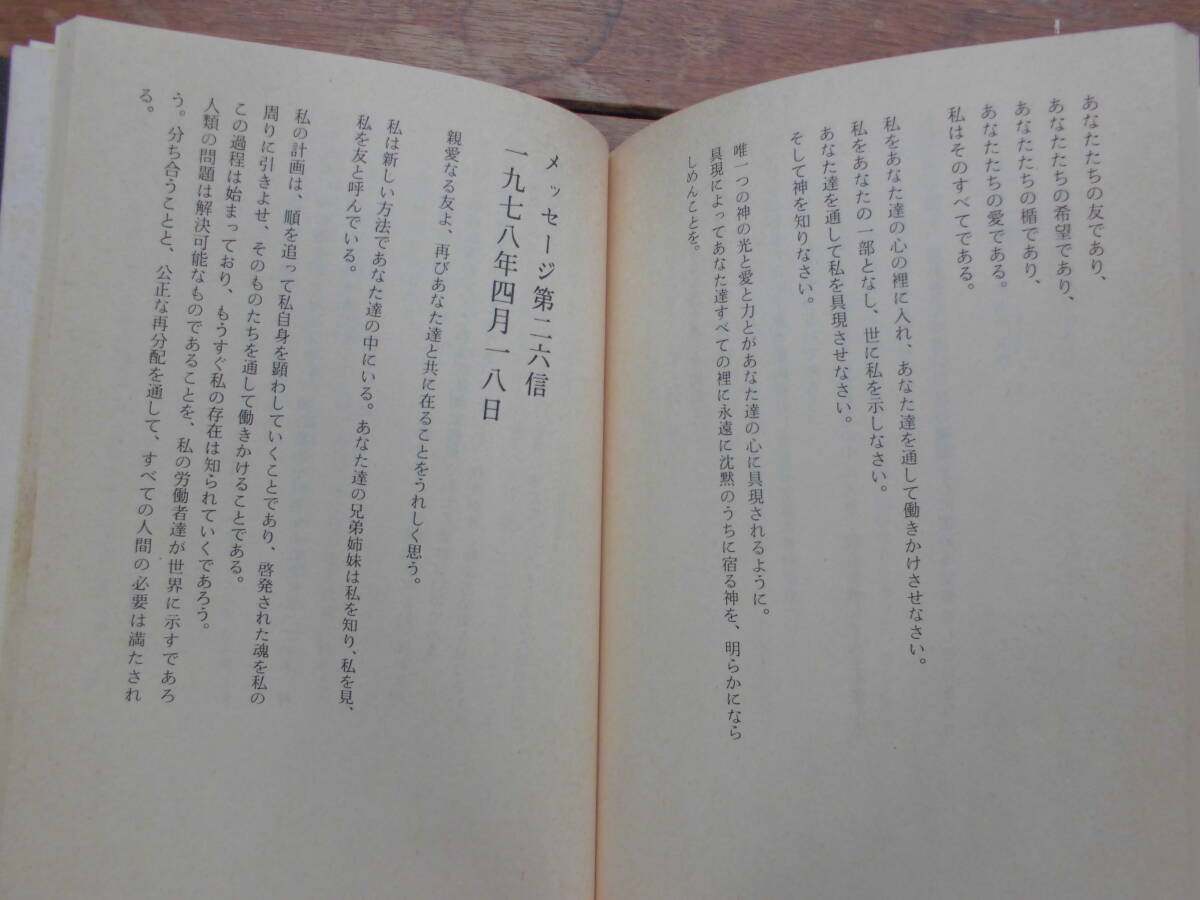 あなたたちの友であり、
あなたたちの希望であり、
あなたたちの楯であり、
あなたたちの愛である。
私はそのすべてである。
私をあなた達の心の裡に入れ、あなた達を通して働きかけさせなさい。
私をあなたの一部となし、世に私を示しなさい。
あなた達を通して私を具現させなさい。
そして神を知りなさい。
唯一つの神の光と愛と力とがあなた達の心に具現されるように。
具現によってあなた達すべての裡に永遠に沈黙のうちに宿る神を、明らかになら
しめんことを。
メッセージ第二六信
一九七八年四月一八日
親愛なる友よ、再びあなた達と共に在ることをうれしく思う。
私は新しい方法であなた達の中にいる。あなた達の兄弟姉妹は私を知り、私を見、
私を友と呼んでいる。
私の計画は、順を追って私自身を顕わしていくことであり、啓発された魂を私の
周りに引きよせ、そのものたちを通して働きかけることである。
この過程は始まっており、もうすぐ私の存在は知られていくであろう。
人類の問題は解決可能なものであることを、私の労働者達が世界に示すであろ
う。分ち合うことと、公正な再分配を通して、すべての人間の必要は満たされ
る。